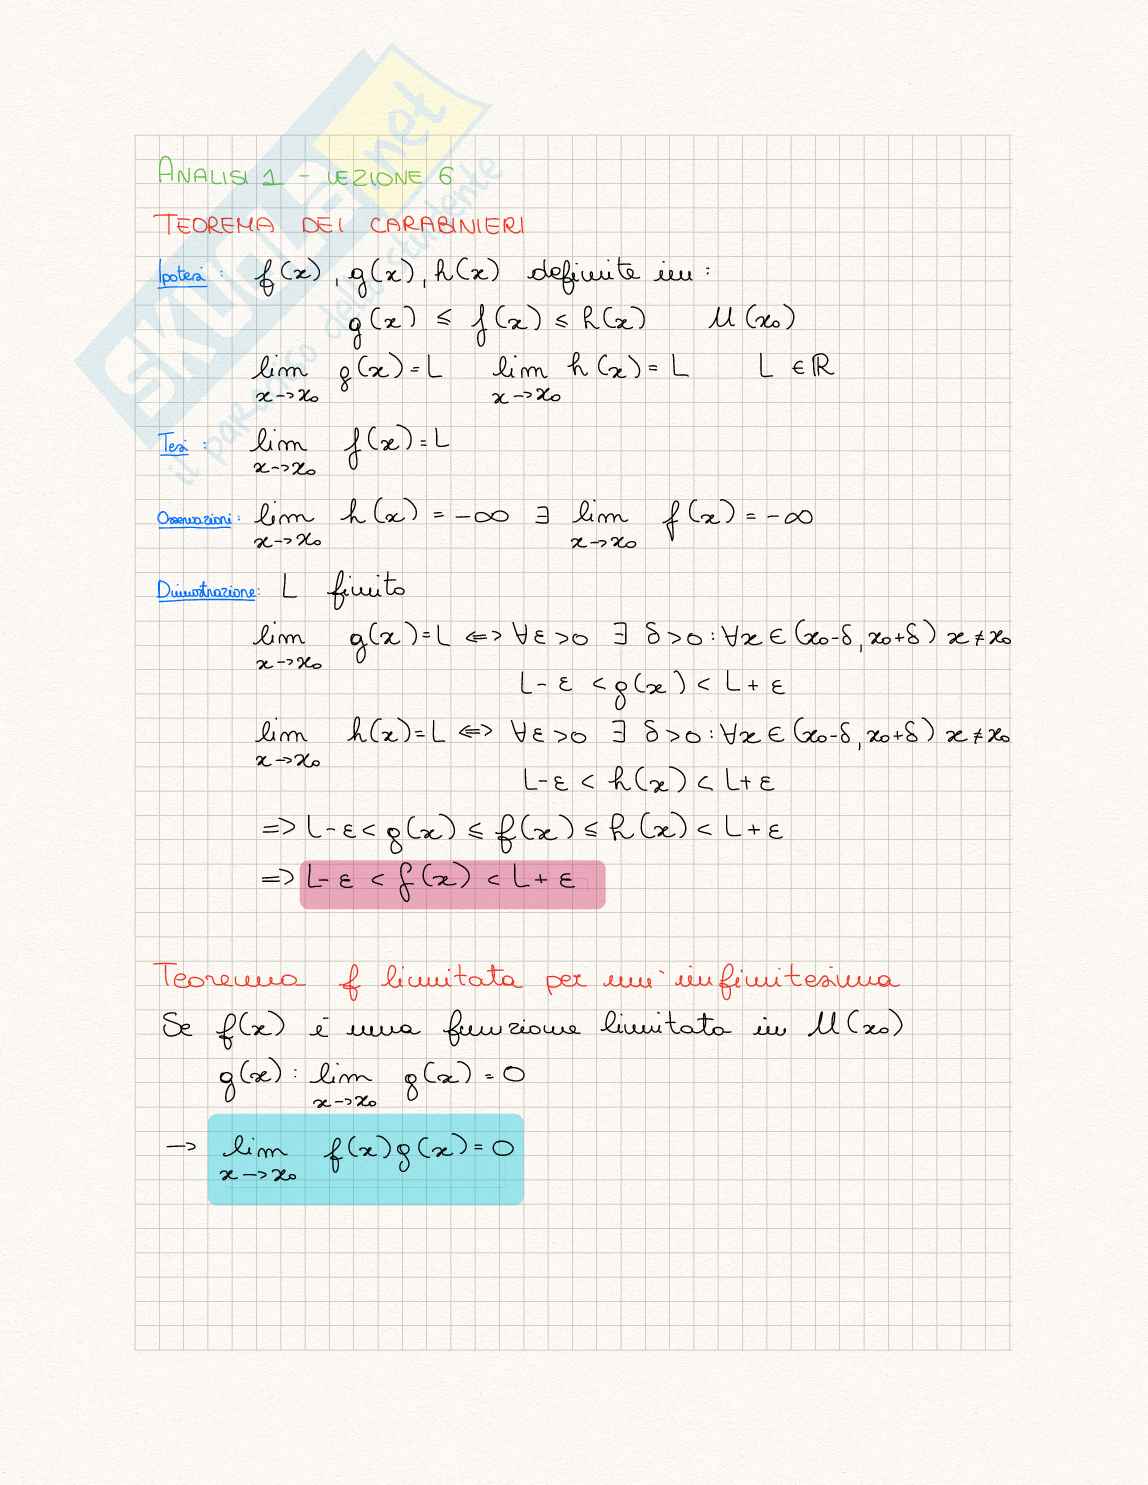 SKUOLA.net
il paradiso dello studente
ANALISI 1 - LEZIONE 6
TEOREMA DEI CARABINIERI
Ipotesi: f(x), g(x), h(x) definite in:
g(x) ≤ f(x) ≤ h(x) U(x₀)
lim x→x₀ g(x) = L lim x→x₀ h(x) = L L ∈ ℝ
Tesi: lim x→x₀ f(x) = L
Osservazioni: lim x→x₀ h(x) = -∞ ∃ lim x→x₀ f(x) = -∞
Dimostrazione: L finito
lim x→x₀ g(x) = L ⇔ ∀ε>0 ∃ δ>0: ∀x ∈ (x₀-δ, x₀+δ) x ≠ x₀
L-ε < g(x) < L+ε
lim x→x₀ h(x) = L ⇔ ∀ε>0 ∃ δ>0: ∀x ∈ (x₀-δ, x₀+δ) x ≠ x₀
L-ε < h(x) < L+ε
=> L-ε < g(x) ≤ f(x) ≤ h(x) < L+ε
=> L-ε < f(x) < L+ε
Teorema f limitata per un'infinitesima
Se f(x) è una funzione limitata in U(x₀)
g(x): lim x→x₀ g(x) = 0
→ lim x→x₀ f(x)g(x) = 0